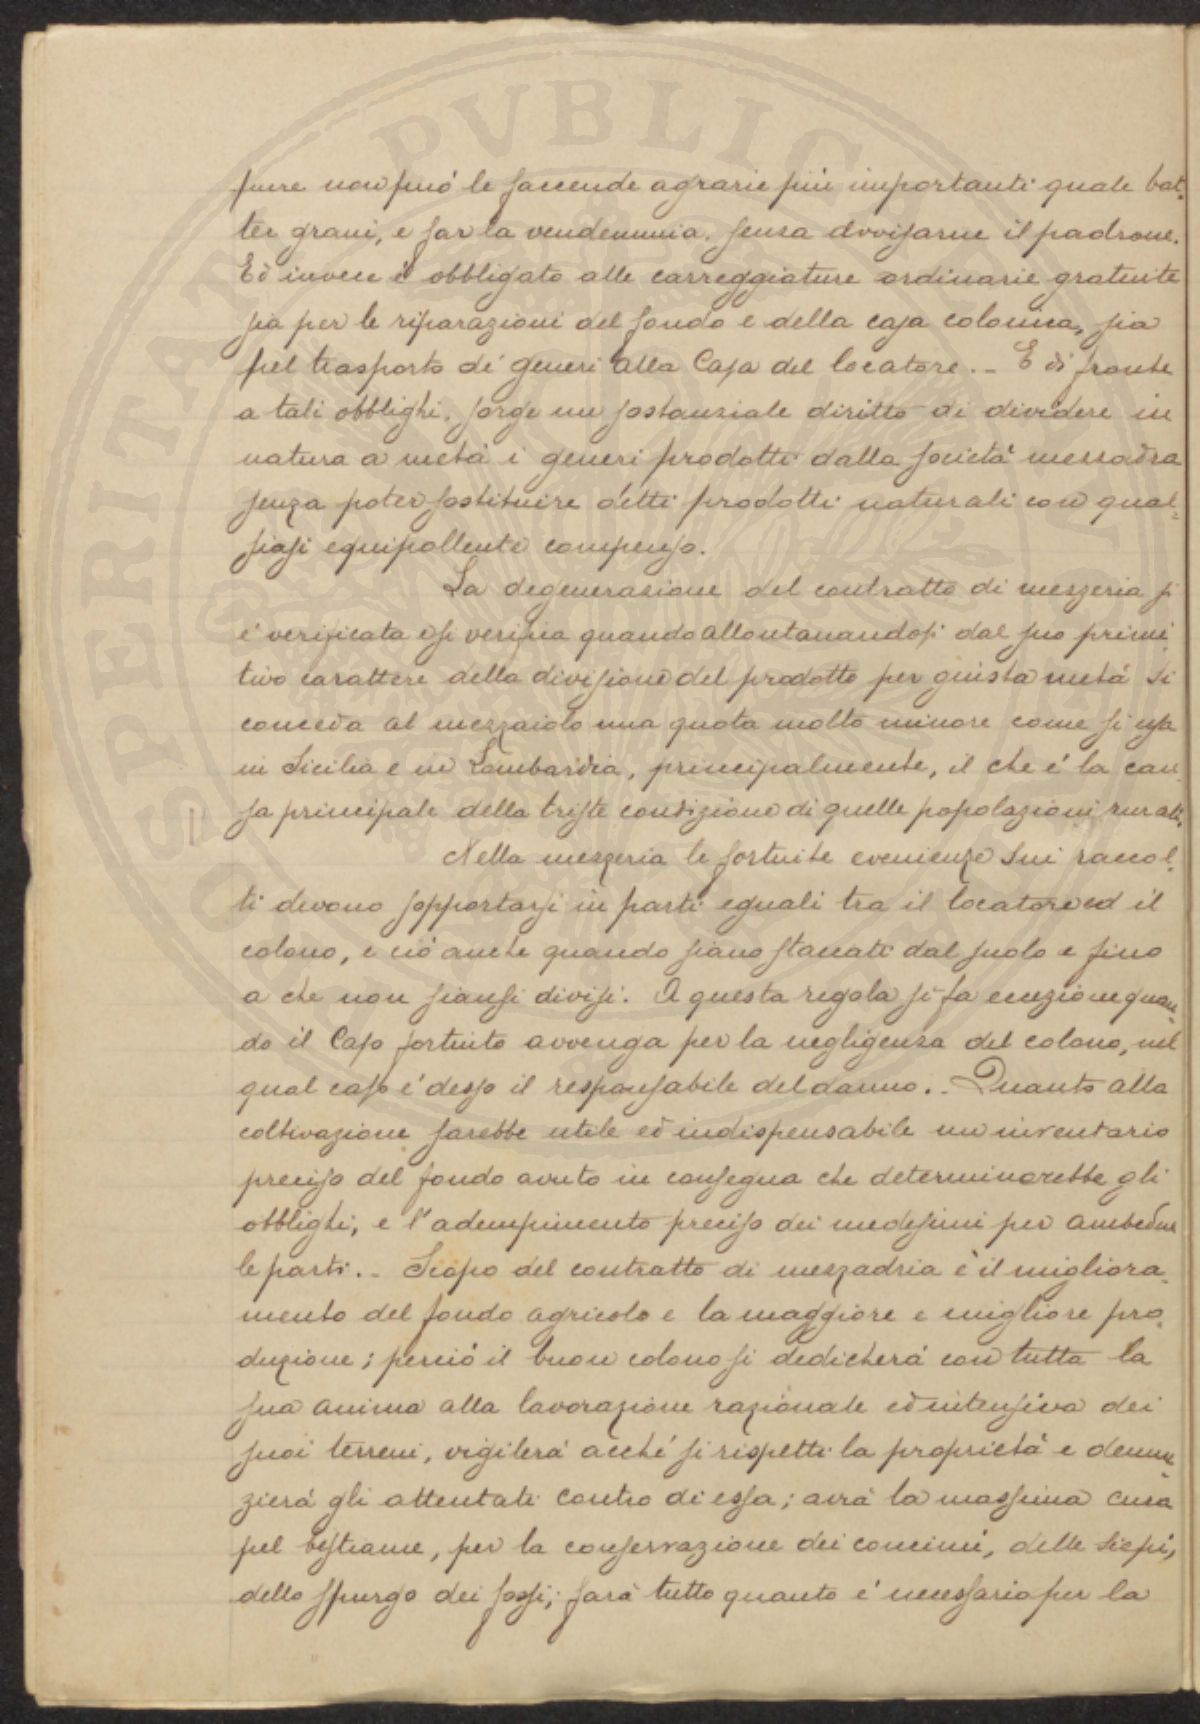 pure non può le faccende agrarie più importanti quale bat-
ter grani, e far la vendemmia. senza avvisarne il padrone.
Ed invece è obbligato alle carreggiature ordinarie gratuite
sia per le riparazioni del fondo e della casa colonica, sia
pel trasporto de' generi alla Casa del locatore. - E di fronte
a tali obblighi, sorge un sostanziale diritto di dividere in
natura a metà i generi prodotti dalla società mezzadra
senza poter sostituire detti prodotti naturali con qual-
siasi equipollente compenso.
La degenerazione del contratto di mezzeria si
è verificata e si verifica quando allontanandosi dal suo primi-
tivo carattere della divisione del prodotto per giusta metà si
conceda al mezzaiolo una quota molto minore come si usa
in Sicilia e in Lombardia, principalmente, il che è la cau-
sa principale della triste condizione di quelle popolazioni rurali.
Nella mezzeria le fortuite evenienze sui raccol-
ti devono sopportarsi in parti eguali tra il locatore ed il
colono, e ciò anche quando siano staccati dal suolo e fino
a che non siansi divisi. A questa regola si fa eccezione quan-
do il Caso fortuito avvenga per la negligenza del colono, nel
qual caso è desso il responsabile del danno. - Quanto alla
coltivazione sarebbe utile ed indispensabile un inventario
preciso del fondo avuto in consegna che determinerebbe gli
obblighi, e l'adempimento preciso dei medesimi per ambedue
le parti. - Scopo del contratto di mezzadria è il migliora-
mento del fondo agricolo e la maggiore e migliore pro-
duzione; perciò il buon colono si dedicherà con tutta la
sua anima alla lavorazione razionale ed intensiva dei
suoi terreni, vigilerà acché si rispetti la proprietà e denun-
zierà gli attentati contro di essa; avrà la massima cura
pel bestiame, per la conservazione dei concimi, delle siepi,
dello spurgo dei fossi; farà tutto quanto è necessario per la